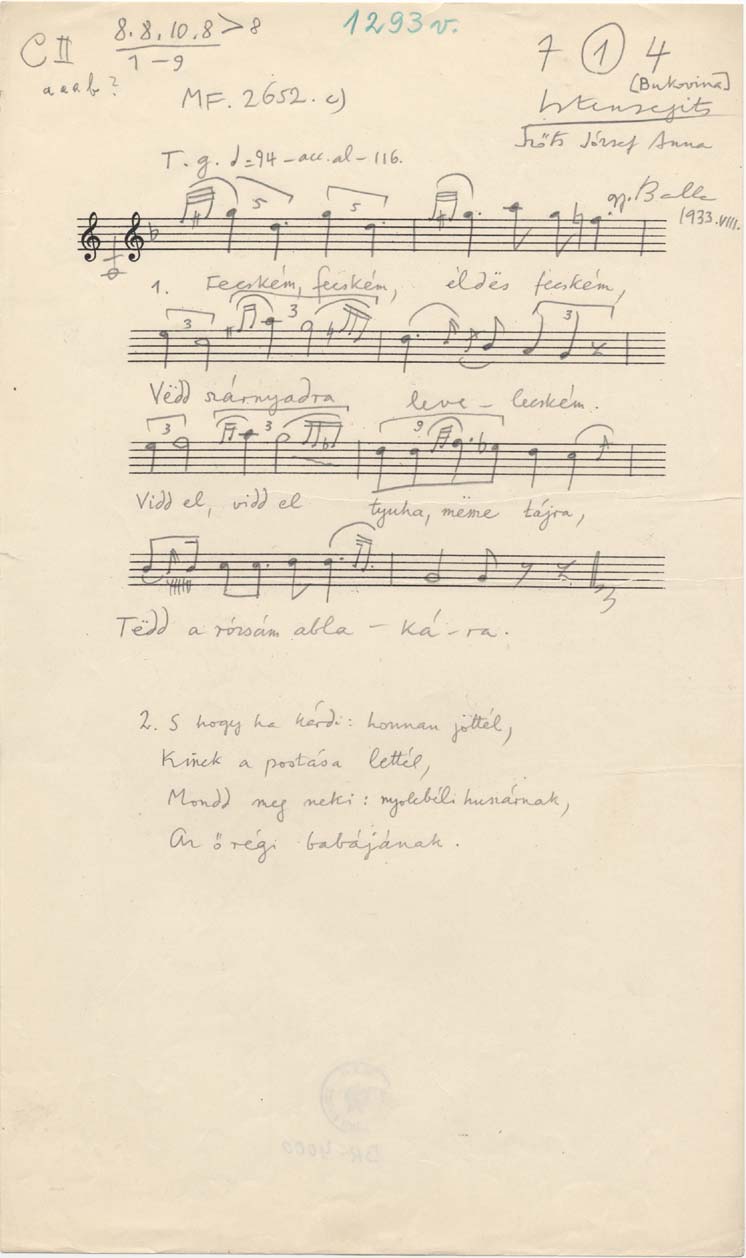 1293 v.
C II 8.8,10,8 > 8
1-9
a a a b ?
7 1 4
[Bukovina]
MF. 2652. c)
Istensegits
Szőts József Anna
T. g. = 94 - acc. al - 116.
gy. Balla
1933. VIII.
5 5
1. Fecském, fecském, éldës fecském,
3 3 3
Vëdd szárnyadra leve - lecském.
3 3 9
Vidd el, vidd el tyuha, mëme tájra,
Tëdd a rózsám abla - ká - ra.
2. S hogy ha kérdi: honnan jöttél,
Kinek a postása lettél,
Mondd meg neki: nyolcbéli huszárnak,
Az ő régi babájának.